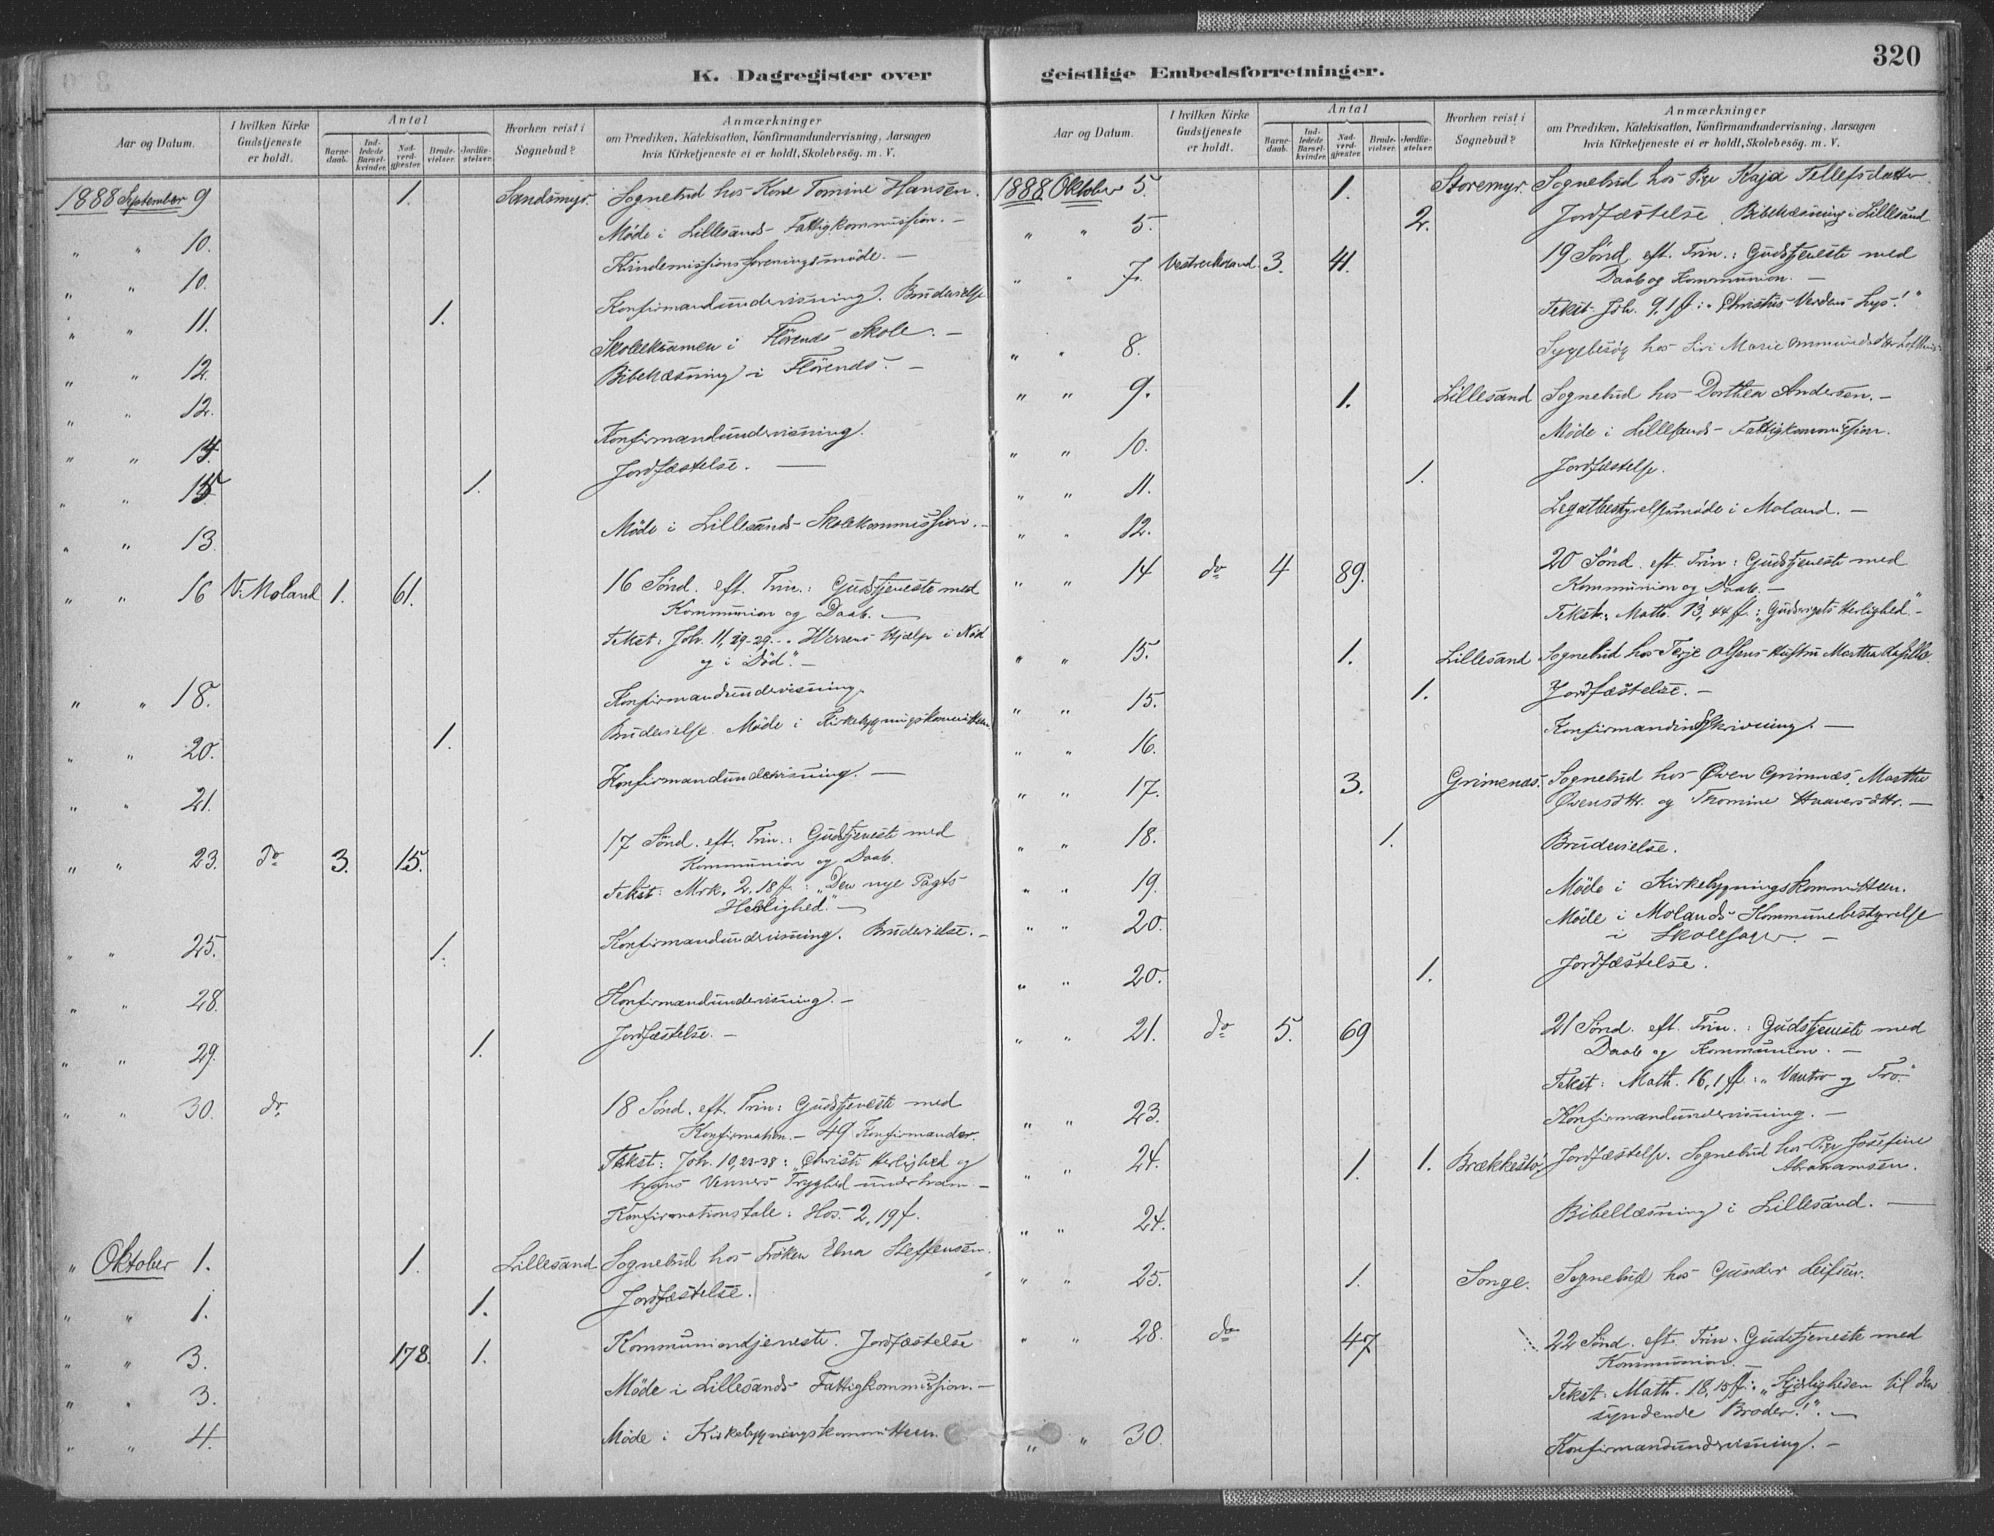 K. Dagregister over
Aar og Datum.
I hvilken Kirke Gudstjeneste er holdt.
Antal
Barne-daab.
Ind-ledede Barsel-kvinder.
Nad-verd-gjester.
Brude-vielser.
Jordfæ-stelser.
Hvorhen reist i Sognebud?
Anmærkninger
om Prædiken, Katekisation, Konfirmandundervisning, Aarsagen
hvis Kirketjeneste ei er holdt, Skolebesøg. m. V.
1888 September 9 1. Sandsmyr. Sognebud hos Kone Tomine Hansen.
" " 10. Møde i Lillesands Fattigkommission. -
" " 10. Kvindemissionsforeningsmøde. -
" " 11. 1. Konfirmandundervisning. Brudevielse
" " 12. Skoleeksamen i Flörends Skole. -
" 12. Bibellæsning i Flörends. -
" " 14. Konfirmandundervisning.
" " 15. 1. Jordfæstelse. -
" " 13. Møde i Lillesands Skolekommission. -
" " 16 V. Moland 1. 61. 16 Sønd. eft. Trin.: Gudstjeneste med
Kommunion og Daab. -
Tekst: Joh. 11, 19-29. " Herrens Hjælp i Nød
og i Død." -
" " 18. Konfirmandundervisning.
" " 20. 1. Brudevielse. Møde i Kirkebygningskomiteen
" " 21. Konfirmandundervisning. -
" " 23. do 3. 15. 17 Sønd. eft. Trin.: Gudstjeneste med
Kommunion og Daab.
Tekst: Mrk. 2, 18 ff.: "Den nye Pagts
Herlighed." -
" " 25. 1. Konfirmandundervisning. Brudevielse. -
" " 28. Konfirmandundervisning. -
" " 29. 1. Jordfæstelse. -
" " 30. do 18 Sønd. eft. Trin: Gudstjeneste med
Konfirmation. - 49 Konfirmander.
Tekst: Joh. 10, 23-38: "Christi Herlighed og
hans Venners Tryghed under ham. -
Konfirmationstale: Hos. 2, 19 f.
" Oktober 1. 1. Lillesand Sognebud hos Frøken Elna Steffensen.
" " 1. 1. Jordfæstelse.
" " 3. 178. 1. Kommuniontjeneste. Jordfæstelse
" " 3. Møde i Lillesands Fattigkommission. -
" " 4. Møde i Kirkebygningskomiteen.
320
geistlige Embedsforretninger.
Aar og Datum.
I hvilken Kirke Gudstjeneste er holdt.
Antal
Barne-daab.
Ind-ledede Barsel-kvinder.
Nad-verd-gjester.
Brude-vielser.
Jordfæ-stelser.
Hvorhen reist i Sognebud?
Anmærkninger
om Prædiken, Katekisation, Konfirmandundervisning, Aarsagen
hvis Kirketjeneste ei er holdt, Skolebesøg. m. V.
1888 Oktober 5. 1. Storemyr. Sognebud hos Pige Kaja Tellefsdatter
" " 5. 2. Jordfæstelse. Bibellæsning i Lillesand
" " 7. Vestre Moland. 3. 41. 19 Sønd. eft. Trin.: Gudstjeneste med
Daab og Kommunion. -
Tekst: Joh. 9, 1 ff: "Christus Verdens Lys!"
" " 8. Sygebesøg hos Siri Marie
" " 9. 1. Lillesand Sognebud hos Dorthea Andersen. -
" " 10. Møde i Lillesands Fattigkommission.
" " 11. 1. Jordfæstelse.
" " 12. Legatbestyrelsesmøde i Moland. -
" " 14 do 4 89. 20 Sønd. eft. Trin: Gudstjeneste med
Kommunion og Daab. -
Tekst: Matth. 13, 44 ff: "Gudsrigets Herlighed." -
" " 15. 1. Lillesand Sognebud hos Terje Olsens Hustru Martha
" " 15. 1. Jordfæstelse. -
" " 16. Konfirmandindskrivning. -
" " 17. 3. Grimenæs. Sognebud hos Øven Grimnæs, Marthe
Øvensdtr. og Thomine Haaversdtr. -
" " 18. 1. Brudevielse.
" " 19. Møde i Kirkebygningskommitteen.
" " 20. Møde i Molands Kommunebestyrelse
i Skolesager. -
" " 20. 1. Jordfæstelse.
" " 21. do 5. 69 21 Sønd. eft. Trin.: Gudstjeneste med
Daab og Kommunion. -
Tekst: Math. 16, 1 ff: "Vantro og Tro."
" " 23. Konfirmandundervisning. -
" " 24. 1. 1. Brækkestø, Jordfæstelse. Sognebud hos Pige Josefine
Abrahamsen.
" " 24. Bibellæsning i Lillesand. -
" " 25. 1. Songe. Sognebud hos Gunder Leifsen.
" " 28. do 47 22 Sønd. eft. Trin. Gudstjeneste med
Kommunion. -
Tekst: Math. 18, 15 ff: "Kjærligheden til den
syndende Broder!". -
" " 30. Konfirmandundervisning. -